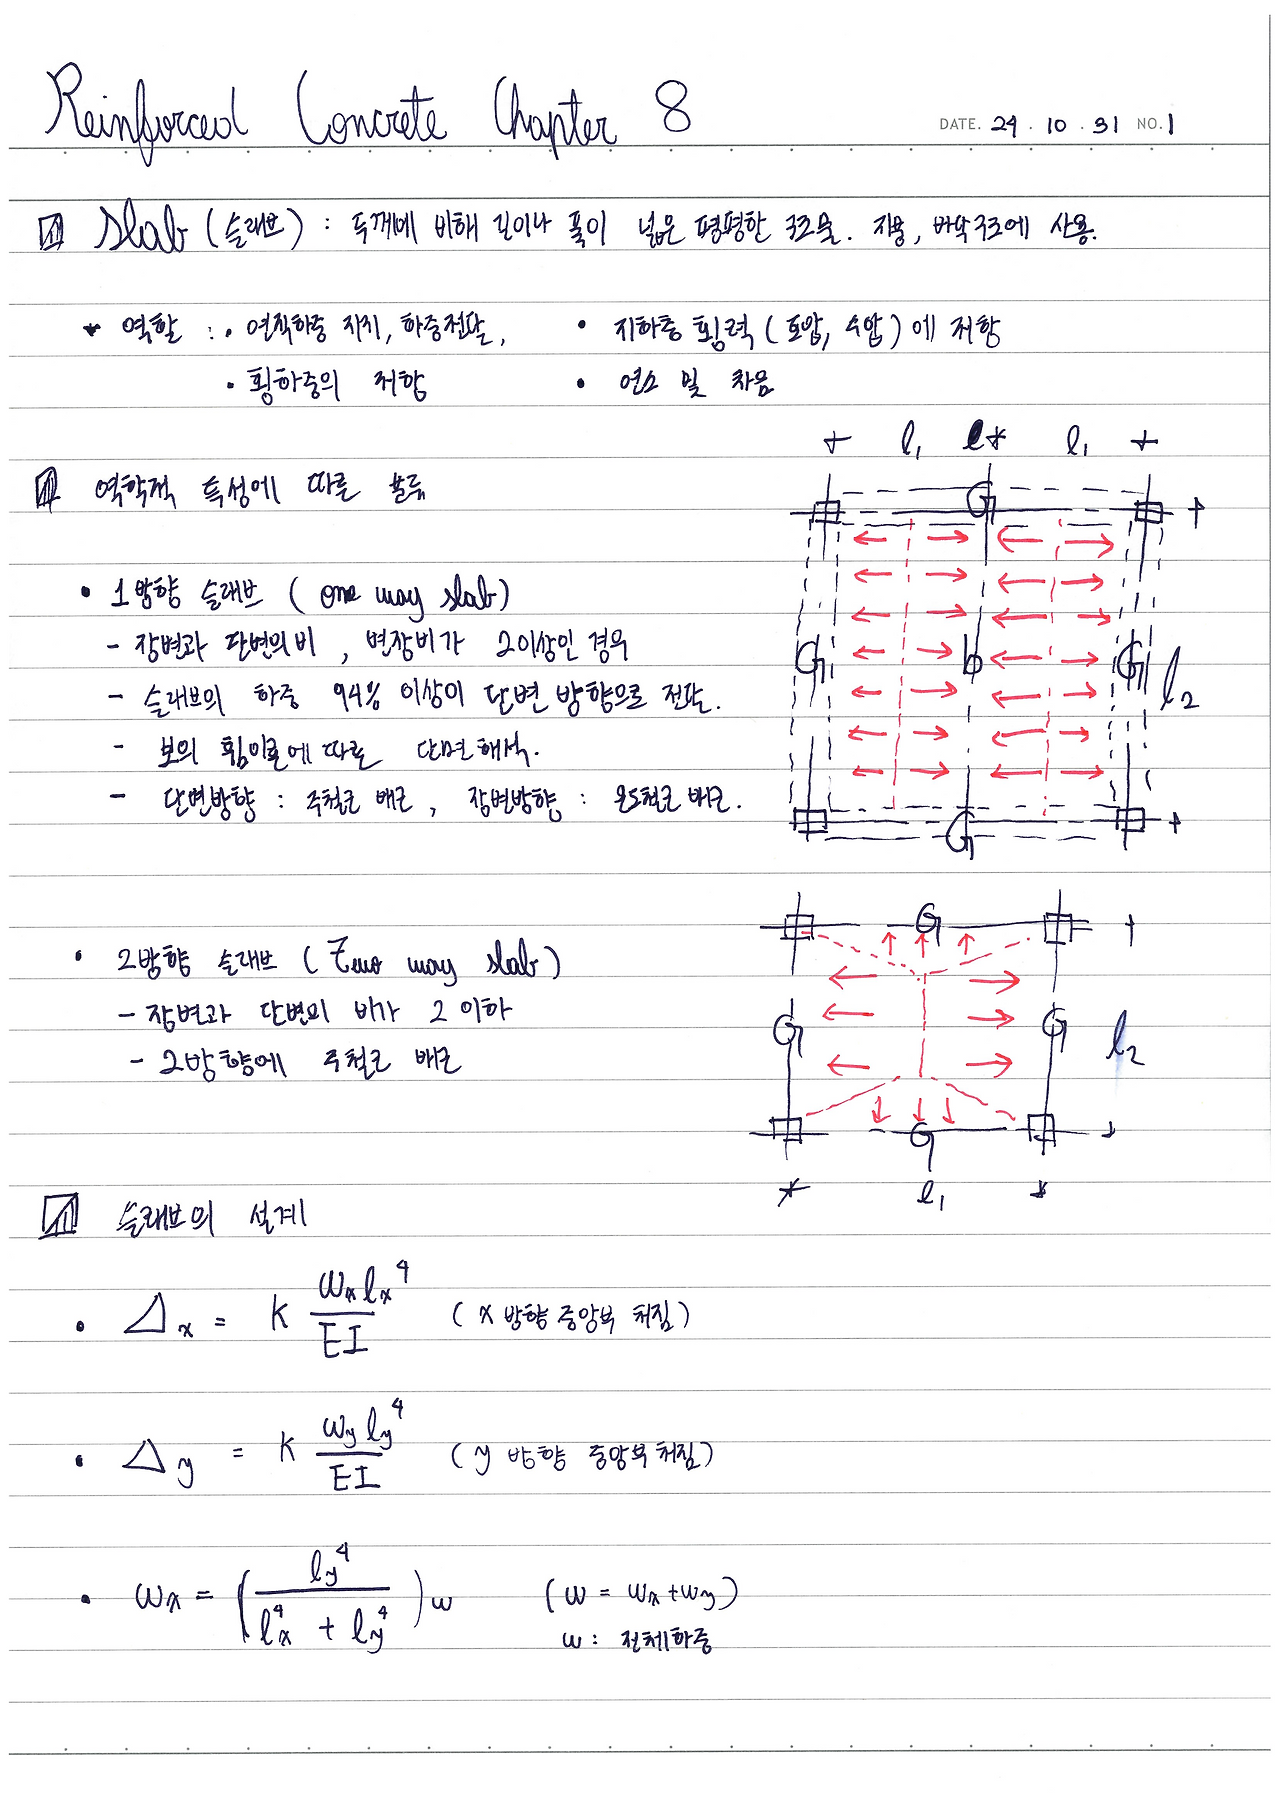 Reinforced Concrete Chapter 8
DATE. 24 . 10 . 31 NO. 1
Slab (슬래브) : 두께에 비해 길이나 폭이 넓은 평평한 구조물. 지붕, 바닥구조에 사용.
* 역할 : • 연직하중 지지, 하중전달, • 지하층 횡력 (토압, 수압) 에 저항
• 횡하중의 저항 • 연소 및 차음
l₁ l₁
역학적 특성에 따른 분류
G
• 1방향 슬래브 ( one way slab)
- 장변과 단변의 비 , 변장비가 2이상인 경우
G b G l₂
- 슬래브의 하중 94% 이상이 단변 방향으로 전달.
- 보의 휨이론에 따른 단면해석.
- 단변방향 : 주철근 배근 , 장변방향 : 온도철근 배근.
G
G
• 2방향 슬래브 (Two way slab)
- 장변과 단변의 비가 2 이하
G G l₂
- 2방향에 주철근 배근
G
l₁
슬래브의 설계
• Δx = K wx lx⁴ / EI (x 방향 중앙부 처짐)
• Δy = K wy ly⁴ / EI (y 방향 중앙부 처짐)
• wx = ( ly⁴ / lx⁴ + ly⁴ ) w (w = wx + wy)
w : 전체하중